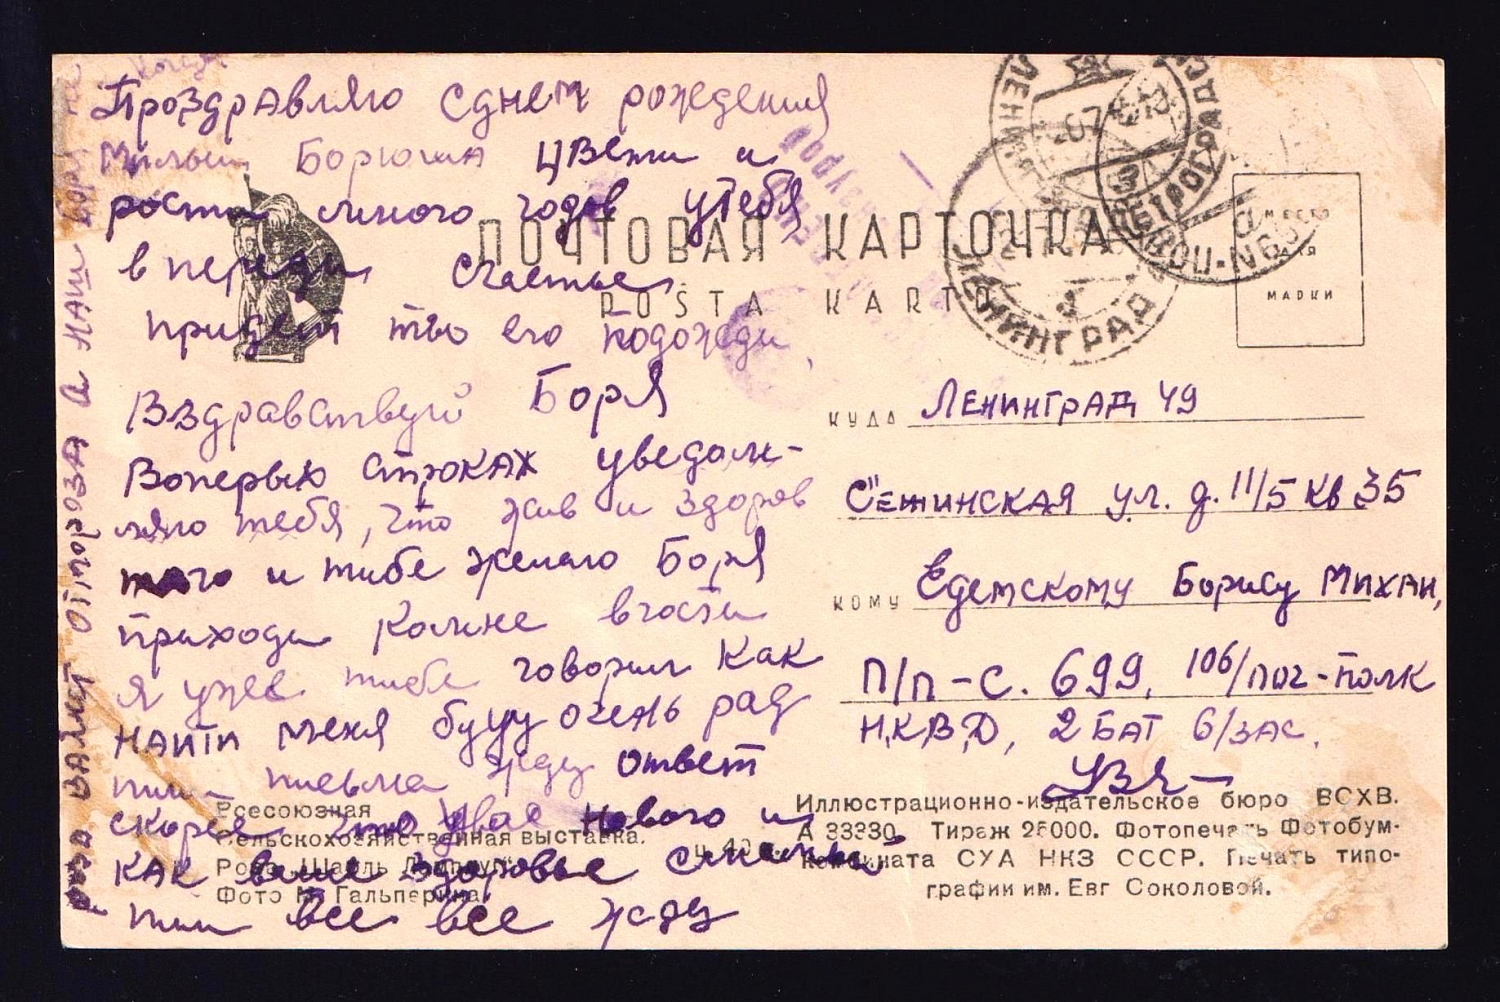 Проздравляю сднем рождения
милыи Борюша цвети и
рости много годов утебя
в переди счастье
придет тво его подожди
Вздравствуй Боря
Вопервых строках уведом-
ляю тебя, что жив и здоров
того и тибе желаю Боря
приходи комне вгости
я уже тибе говорил как
наити меня буду очень рад
пиши письма жду ответ
скорее что увас нового и
как ваше здоровье
пиши все все жду
роза вянет отмороза а наш Боря не
ПОЧТОВАЯ КАРТОЧКА
POŜTA KARTO
МЕСТО
ДЛЯ
МАРКИ
ЛЕНИНГРАД
КУДА Ленинград 49
ул. д. 11/5 кв 35
КОМУ Едемскому Борису Михаи,
П/П-С. 699, 106/пог-полк
Н,К,В,Д, 2 БАТ 6/зас.
Всесоюзная
сельскохозяйственная выставка.
Роза „Шарль
Фото М. Гальперина
ц. 40
Иллюстрационно-издательское бюро ВСХВ.
А 33330. Тираж 25000. Фотопечать Фотобум-
Комбината СУА НКЗ СССР. Печать типо-
графии им. Евг Соколовой.